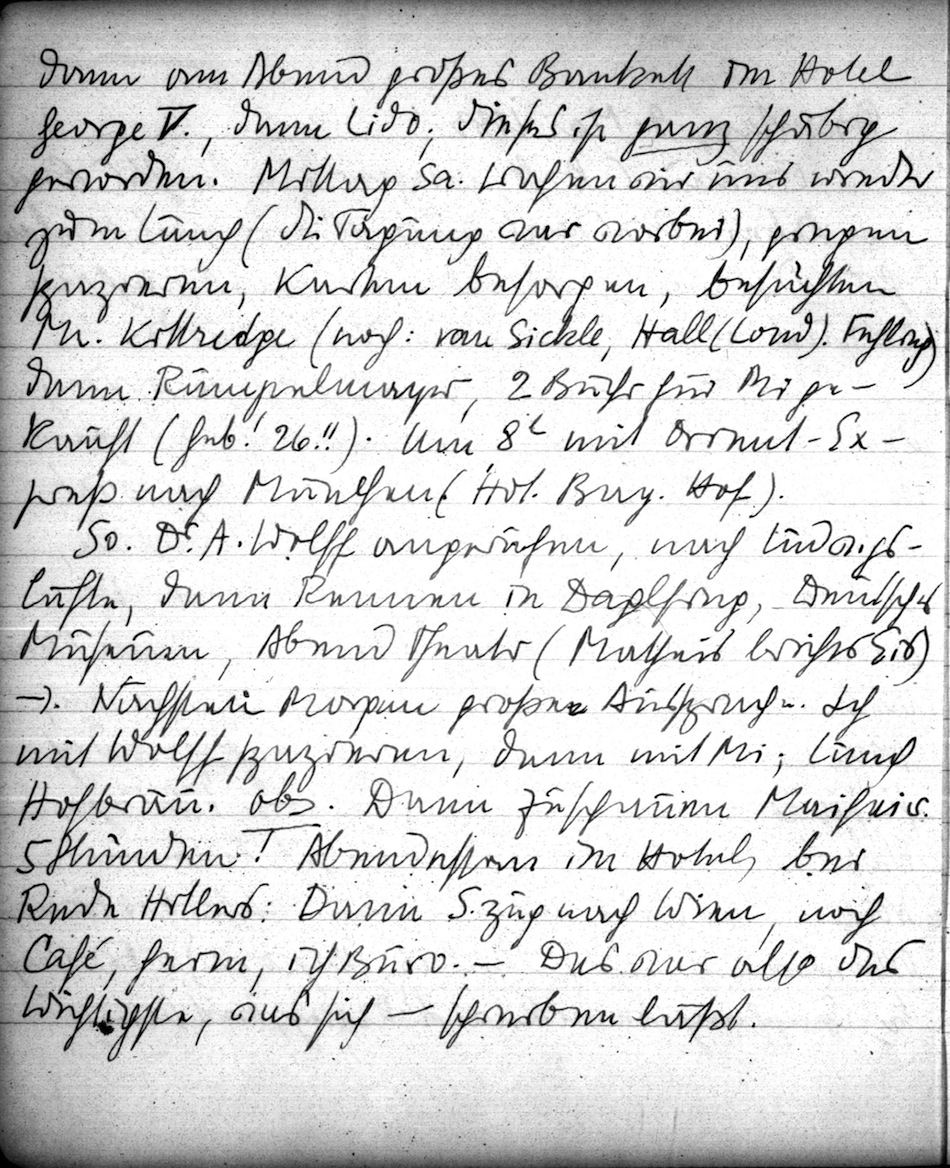 dann am Abend großes Bankett im Hotel
George V., dann Lido; dieses ist ganz schäbig
geworden. Mittag Sa. trafen wir uns wieder
zum Lunch (die Tagung war vorbei), gingen
spazieren, Karten besorgen, besuchten
Mr. Kittredge (noch: van Sickle, Hall (Lond).
dann Rumpelmayer, 2 Bücher für Mi ge-
kauft (Geb. 26!!). Um 8h mit Orient-Ex-
preß nach München (Hot. Bay. Hof).
So. Dr. A. Wolff angerufen, nach Ludwigs-
dann Rennen in Daglfing, Deutsches
Museum, Abend Theater (Mathias Eis)
–). Nächsten Morgen große Aussprache. Ich
mit Wolff spazieren, dann mit Mi; Lunch
Hofbräu. Dann zuschauen
5 Stunden! Abendessen im Hotel, bei
Rede Hitlers: Dann S.zug nach Wien, noch
Café, heim, ich Büro. – Das war also das
Wichtigste, was sich – schreiben läßt.